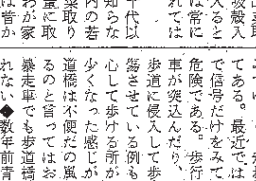 吸殻入
入ると
は常に
れては
十代以
知らな
内の若
菜取り
量に取
わが家
は昔か
てある。最近では
で信号だけをみて
危険である。歩行
車が突込んだり、
歩道に侵入して歩
傷させている例も
心して歩ける所が
少くなった感じが
道橋は不便だの風
ると言ってはお
暴走車でも歩道橋
れない◆数年前青